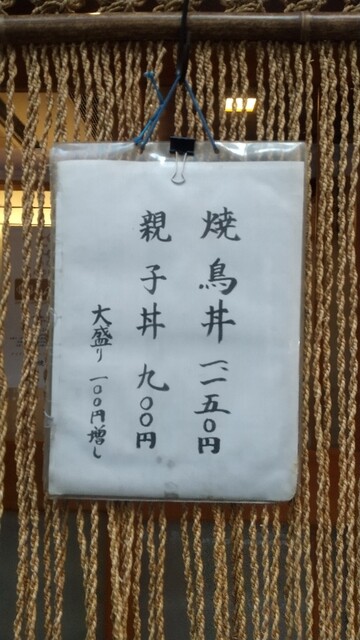 焼鳥井 一二五〇円
親子丼 九〇〇円
大盛り 一〇〇円増し